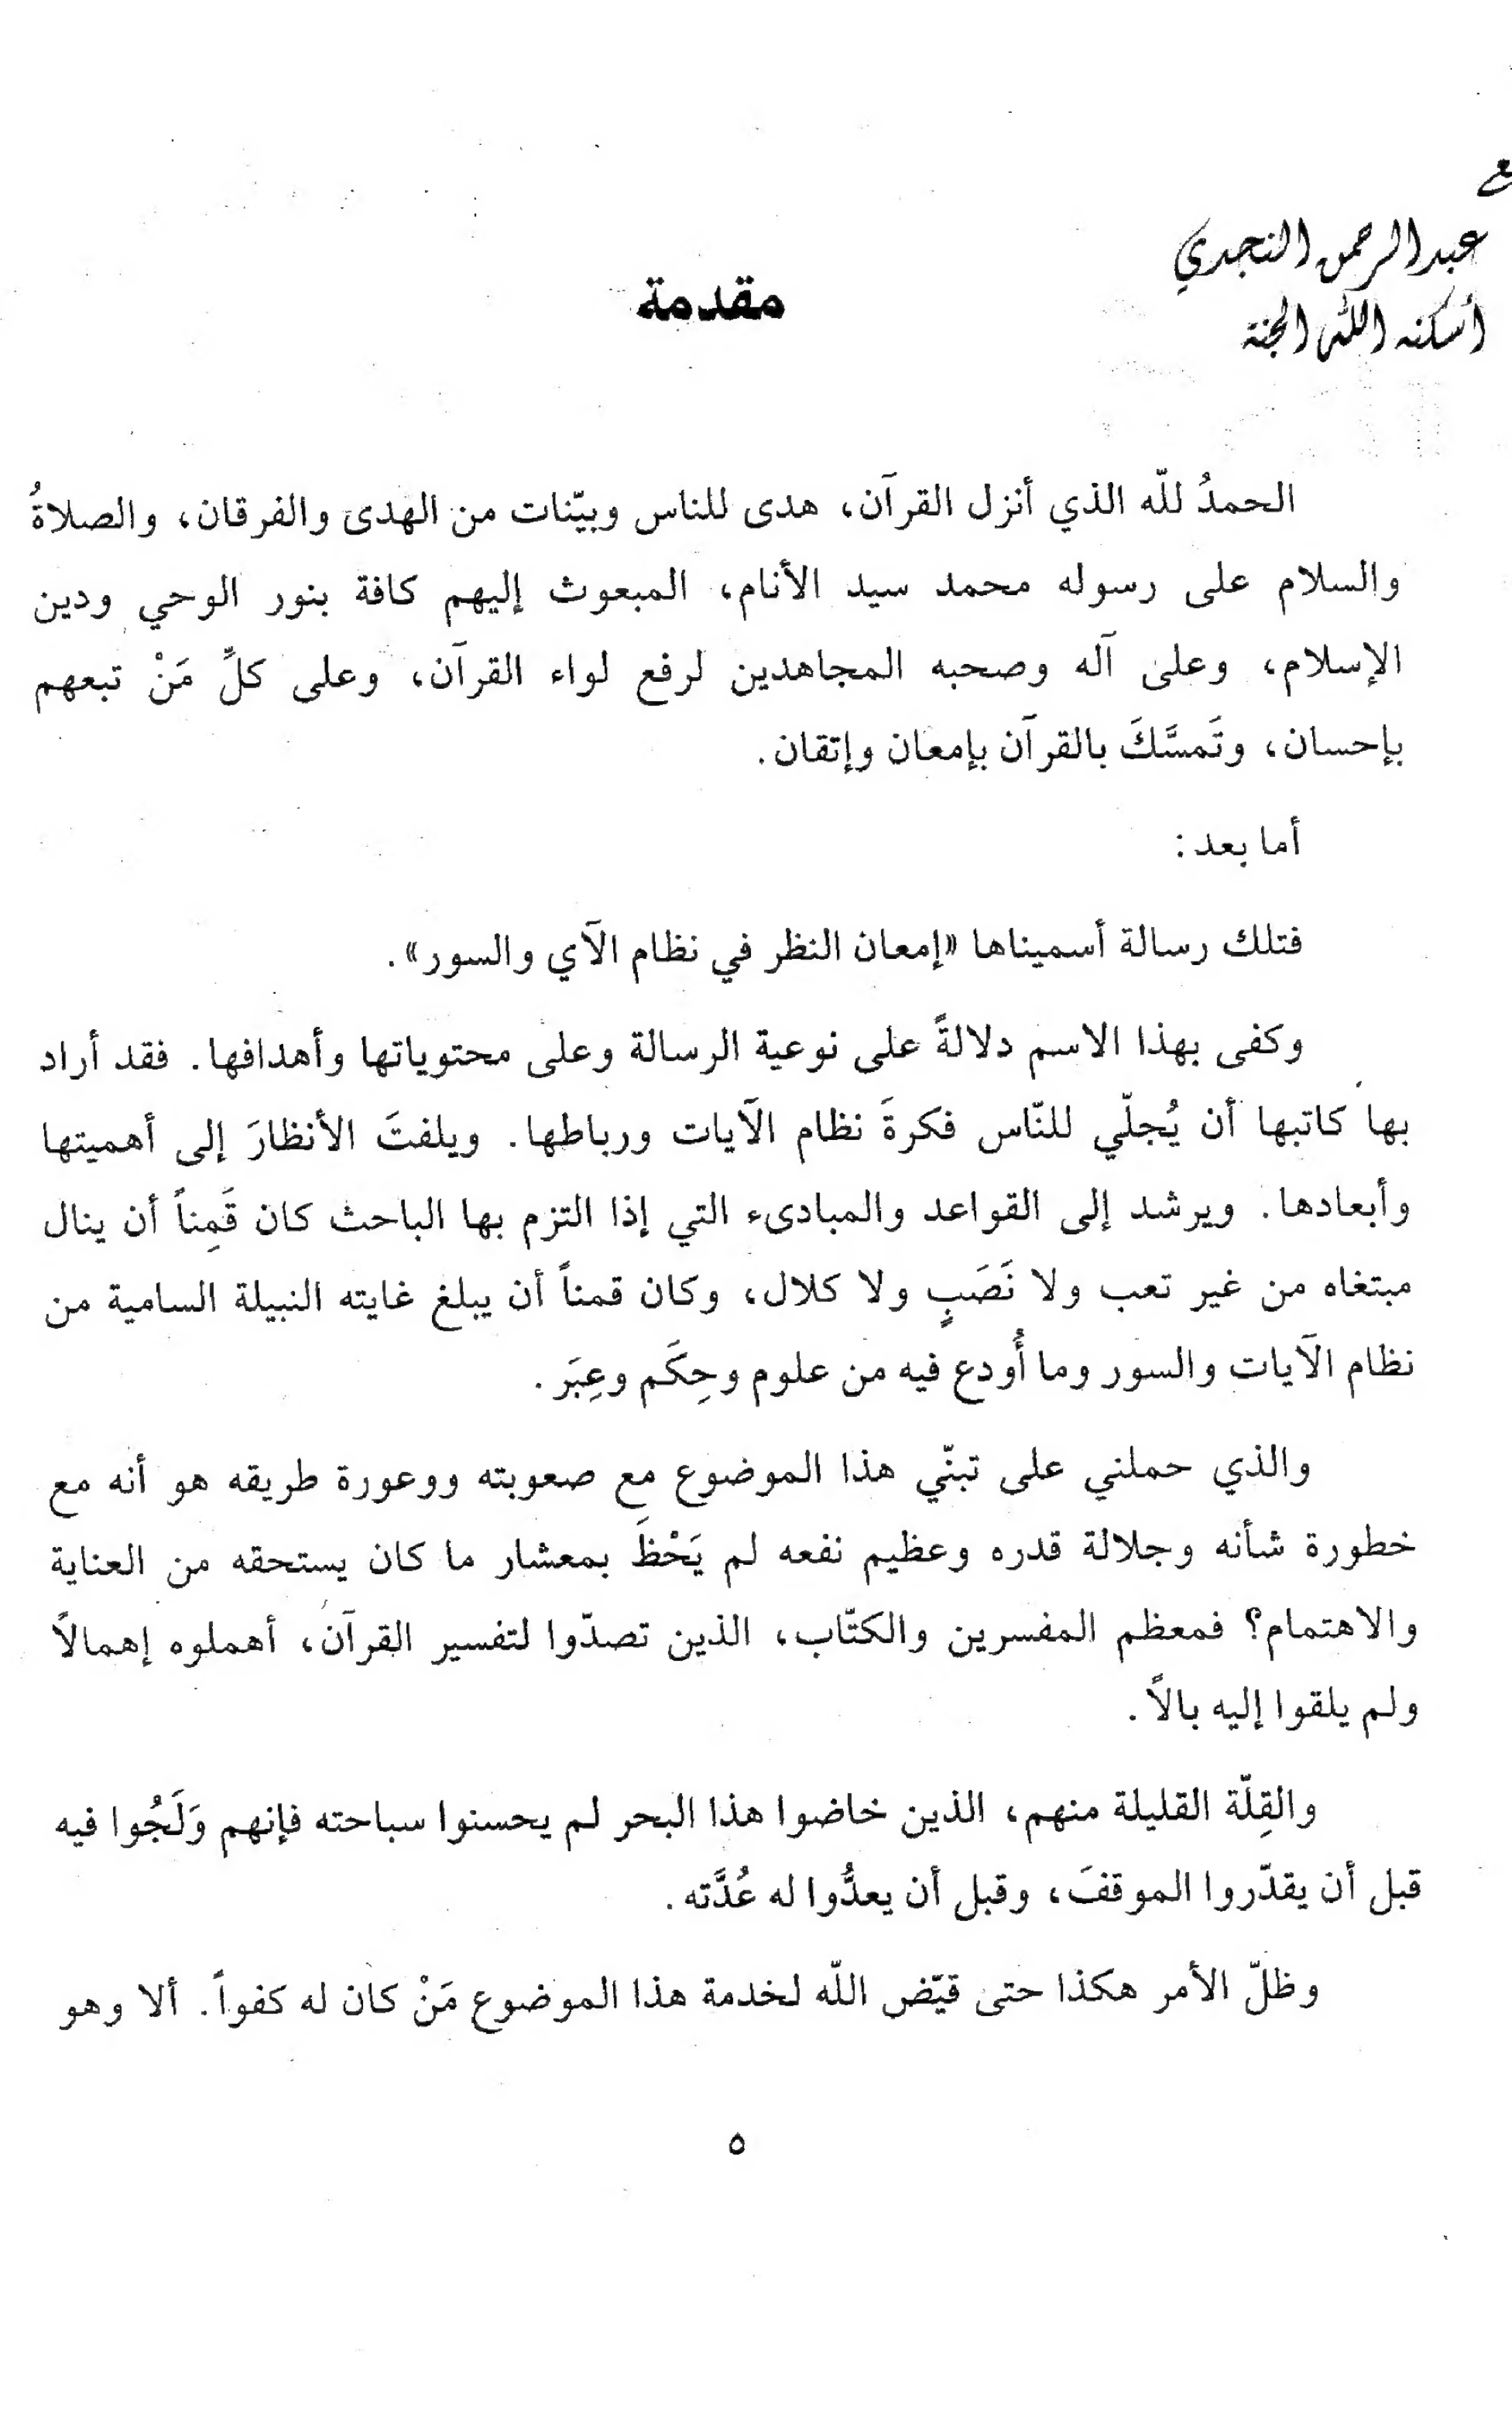 عبدالرحمن النجدي
أسكنه الله الجنة
مقدمة
الحمدُ للّه الذي أنزل القرآن، هدى للناس وبيّنات من الهدى والفرقان، والصلاةُ
والسلام على رسوله محمد سيد الأنام، المبعوث إليهم كافة بنور الوحي ودين
الإسلام، وعلى آله وصحبه المجاهدين لرفع لواء القرآن، وعلى كلِّ مَنْ تبعهم
بإحسان، وتَمسَّكَ بالقرآن بإمعان وإتقان.
أما بعد:
فتلك رسالة أسميناها «إمعان النظر في نظام الآي والسور».
وكفى بهذا الاسم دلالةً على نوعية الرسالة وعلى محتوياتها وأهدافها. فقد أراد
بها كاتبها أن يُجلّي للنّاس فكرةَ نظام الآيات ورباطها. ويلفتَ الأنظارَ إلى أهميتها
وأبعادها. ويرشد إلى القواعد والمبادىء التي إذا التزم بها الباحث كان قَمِناً أن ينال
مبتغاه من غير تعب ولا نَصَبٍ ولا كلال، وكان قمناً أن يبلغ غايته النبيلة السامية من
نظام الآيات والسور وما أُودع فيه من علوم وحِكَم وعِبَر.
والذي حملني على تبنّي هذا الموضوع مع صعوبته ووعورة طريقه هو أنه مع
خطورة شأنه وجلالة قدره وعظيم نفعه لم يَحْظَ بمعشار ما كان يستحقه من العناية
والاهتمام؟ فمعظم المفسرين والكتّاب، الذين تصدّوا لتفسير القرآن، أهملوه إهمالاً
ولم يلقوا إليه بالاً.
والقِلّة القليلة منهم، الذين خاضوا هذا البحر لم يحسنوا سباحته فإنهم وَلَجُوا فيه
قبل أن يقدّروا الموقفَ، وقبل أن يعدُّوا له عُدَّته.
وظلّ الأمر هكذا حتى قيّض اللّه لخدمة هذا الموضوع مَنْ كان له كفواً. ألا وهو
٥